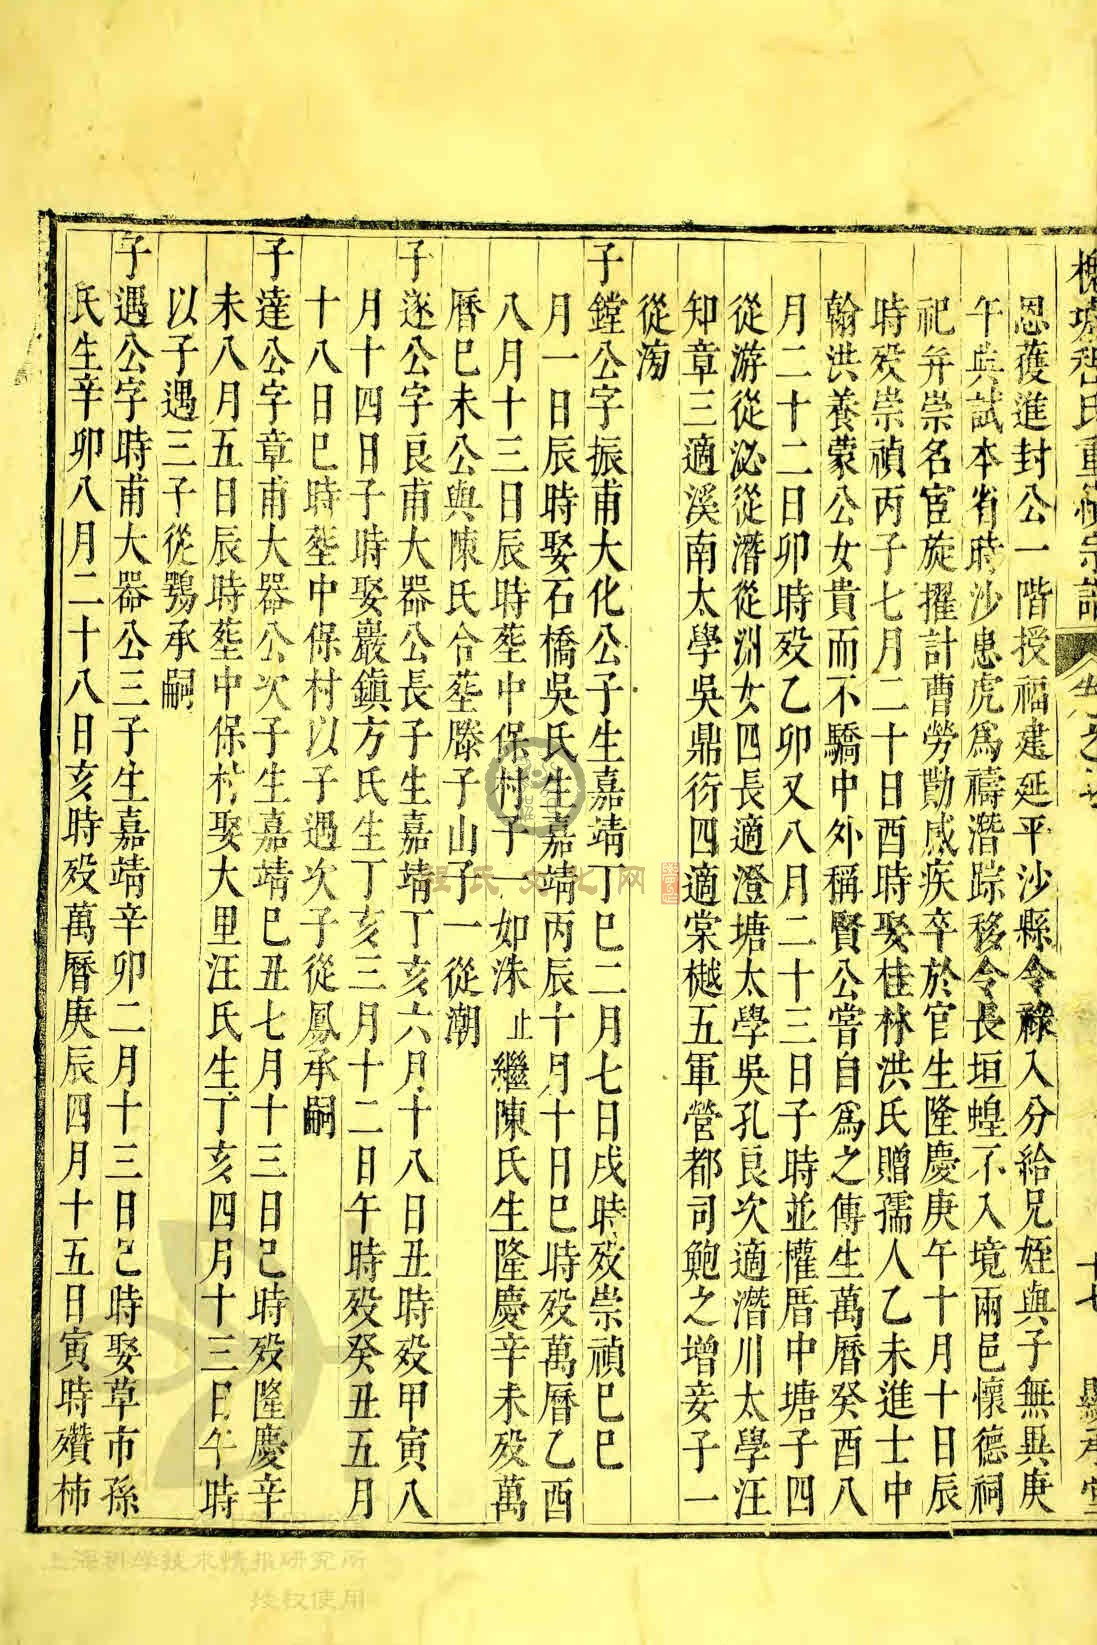 槐塘程氏重續宗譜
恩獲進封公一階授福建延平沙縣令祿入分給兄姪與子無異庚
午與試本省時沙患虎爲禱潛踪移令長垣蝗不入境兩邑懷德祠
祀弁崇名宦旋擢計曹勞勩感疾卒於官生隆慶庚午十月十日辰
時歿崇禎丙子七月二十日酉時娶桂林洪氏贈孺人乙未進士中
翰洪養蒙公女貴而不驕中外稱賢公嘗自爲之傳生萬曆癸酉八
月二十二日卯時歿乙卯又八月二十三日子時並權厝中塘子四
從游從泌從潛從洲女四長適澄塘太學吳孔良次適潛川太學汪
知章三適溪南太學吳鼎衍四適棠樾五軍營都司鮑之增妾子一
從洵
子鏜公字振甫大化公子生嘉靖丁巳二月七日戌時歿崇禎己巳
月一日辰時娶石橋吳氏生嘉靖丙辰十月十日巳時歿萬曆乙酉
八月十三日辰時塟中保村子一如洙止繼陳氏生隆慶辛未歿萬
曆己未公與陳氏合塟滕子山子一從潮
子遂公字良甫大器公長子生嘉靖丁亥六月十八日丑時歿甲寅八
月十四日子時娶巖鎮方氏生丁亥三月十二日午時歿癸丑五月
十八日巳時塟中保村以子遇次子從鳳承嗣
子達公字章甫大器公次子生嘉靖己丑七月十三日巳時歿隆慶辛
未八月五日辰時塟中保村娶大里汪氏生丁亥四月十三日午時
以子遇三子從鶚承嗣
子遇公字時甫大器公三子生嘉靖辛卯二月十三日巳時娶草市孫
氏生辛卯八月二十八日亥時歿萬曆庚辰四月十五日寅時殯柿
程氏文化网
上海科学技术情报研究所
授权使用